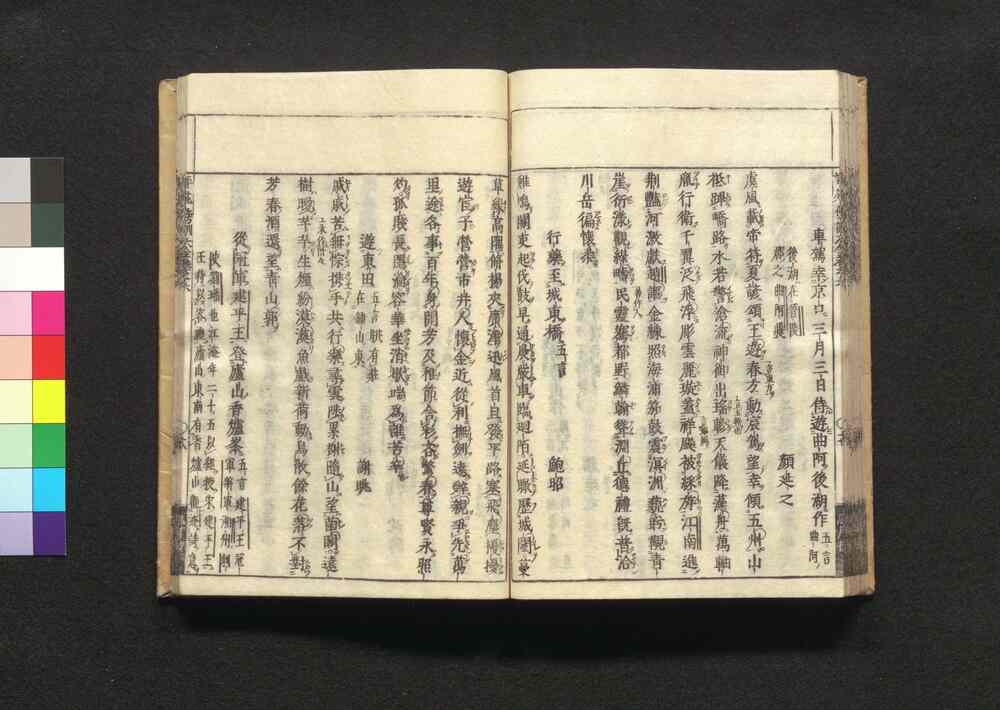 車駕幸京口三月三日侍遊曲阿後湖作 五言
曲阿
後湖在晉陵
郡之曲阿縣
顏延之
虞風載帝狩夏諺頌王遊春方動宸駕望幸傾五州山
祗蹕嶠路水若警滄流神御出瑤軫天儀降藻舟萬軸
胤行衛千翼泛飛浮彫雲麗琁蓋祥飈被綵斿江南進
荊豔河激獻趙謳金練照海浦笳鼓震溟洲藐眄覯青
崖衍漾觀綠疇民靈騫都野鱗翰聳淵丘德禮既普洽
川岳徧懷柔
行藥至城東橋 五言 鮑昭
雞鳴關吏起伐鼓早通晨嚴車臨迴陌延瞰歷城闉蔓
草緣高隅脩楊夾廣津迅風首旦發平路塞飛塵擾擾
遊宦子營營市井人懷金近從利撫劍遠辭親爭先萬
里塗各事百年身開芳及稚節含彩吝驚春尊賢永照
灼孤賤長隱淪容華坐消歇端爲誰苦辛
遊東田 五言 眺有莊
在鍾山東 謝眺
慼慼苦無悰攜手共行樂尋雲陟累榭隨山望菌閣遠
樹曖芊芊生煙紛漠漠魚戲新荷動鳥散餘花落不對
芳春酒還望青山郭
從冠軍建平王登廬山香爐峯 五言 建平王冠
軍將軍湘州刺